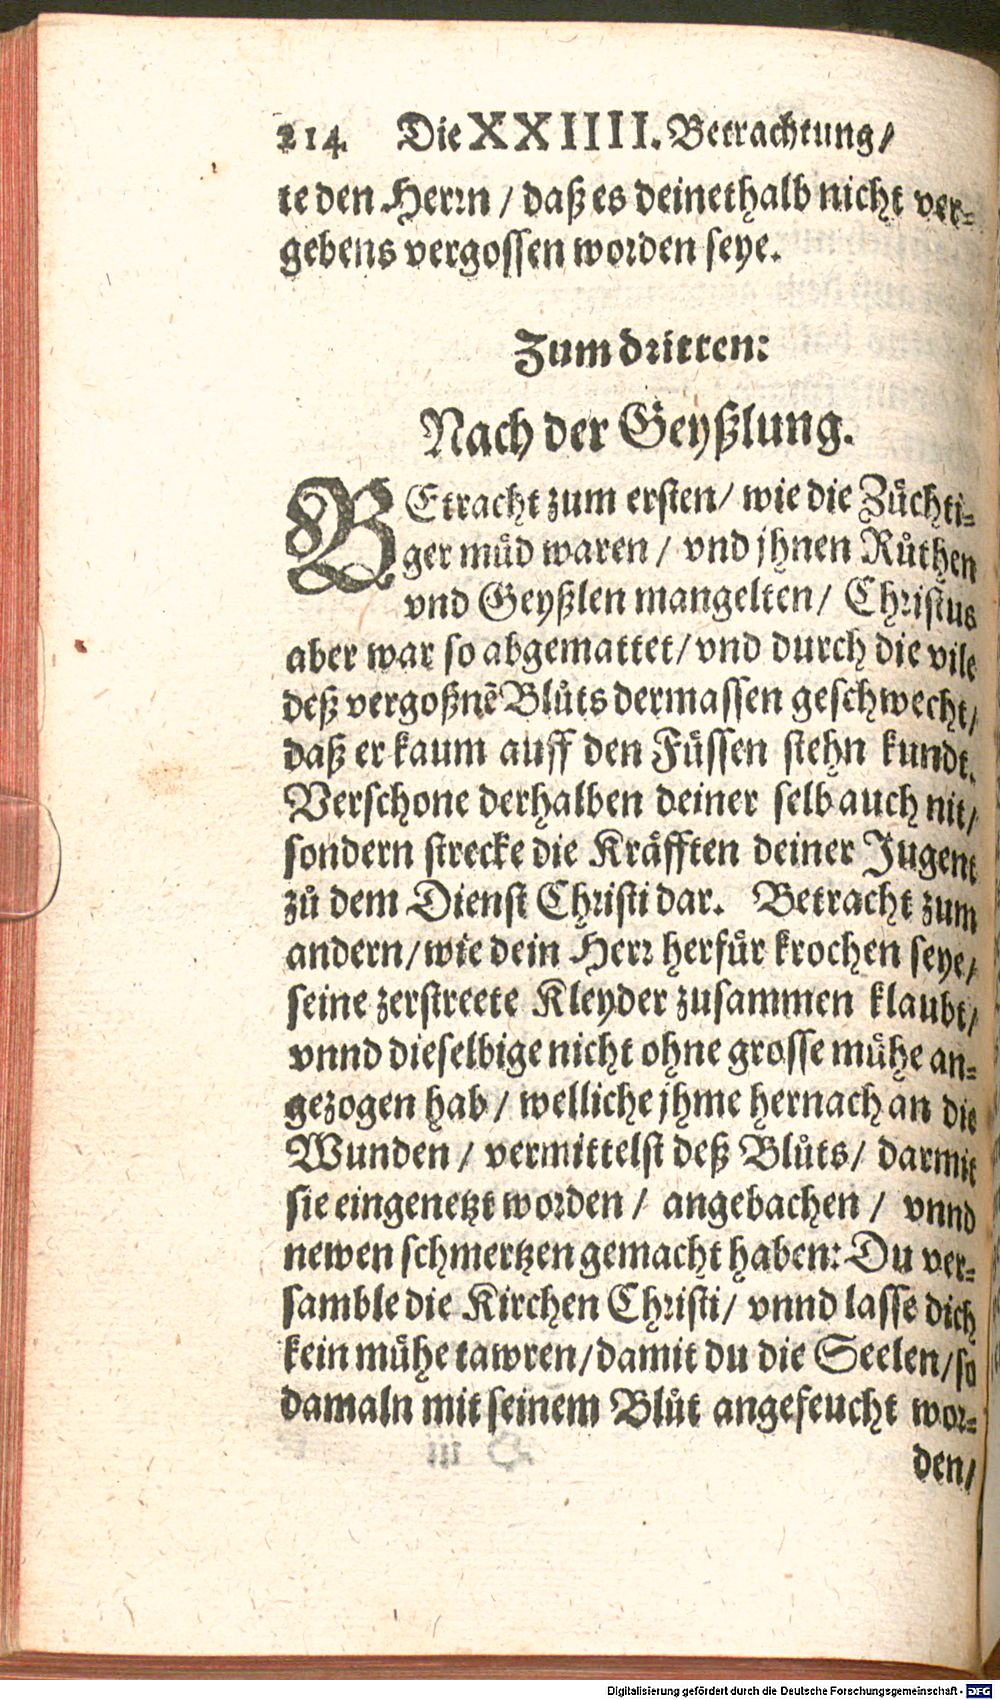 214. Die XXIIII. Betrachtung/
te den Herrn / daß es deinethalb nicht ver-
gebens vergossen worden seye.
Zum dritten:
Nach der Geyßlung.
BEtracht zum ersten/ wie die Zůchti-
ger müd waren / vnd jhnen Růthen
vnd Geyßlen mangelten/ Christus
aber war so abgemattet/ vnd durch die vile
deß vergoßnẽ Blůts dermassen geschwecht/
daß er kaum auff den Füssen stehn kundt.
Verschone derhalben deiner selb auch nit/
sondern strecke die Kräfften deiner Jugent
zů dem Dienst Christi dar. Betracht zum
andern/ wie dein Herr herfür krochen seye/
seine zerstreete Kleyder zusammen klaubt/
vnnd dieselbige nicht ohne grosse mühe an-
gezogen hab / welliche jhme hernach an die
Wunden / vermittelst deß Blůts/ darmit
sie eingenetzt worden / angebachen / vnnd
newen schmertzen gemacht haben: Du ver-
samble die Kirchen Christi/ vnnd lasse dich
kein mühe tawren/ damit du die Seelen/ so
damaln mit seinem Blůt angefeucht wor-
den/
Digitalisierung gefördert durch die Deutsche Forschungsgemeinschaft - DFG